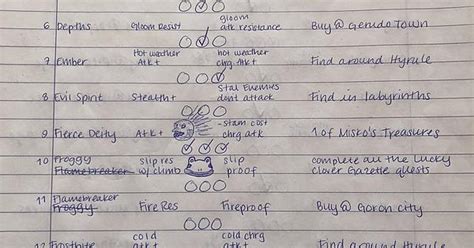 gloom
6 Depths gloom Resist atk resistance Buy @ Gerudo Town
Hot weather hot weather
7 Ember Atk↑ chrg atk↑ Find around Hyrule
Stal Enemies
8 Evil Spirit Stealth↑ dont attack Find in labyrinths
- stam cost
9 Fierce Deity Atk↑ chrg atk 1 of Misko's Treasures
10 Froggy slip res slip complete all the Lucky
Flamebreaker w/ climb proof clover Gazette quests
11 Flamebreaker
Froggy Fire Res Fireproof Buy @ Goron City
cold cold chrg
12 Frostbite atk↑ atk↑ Find around Hyrule